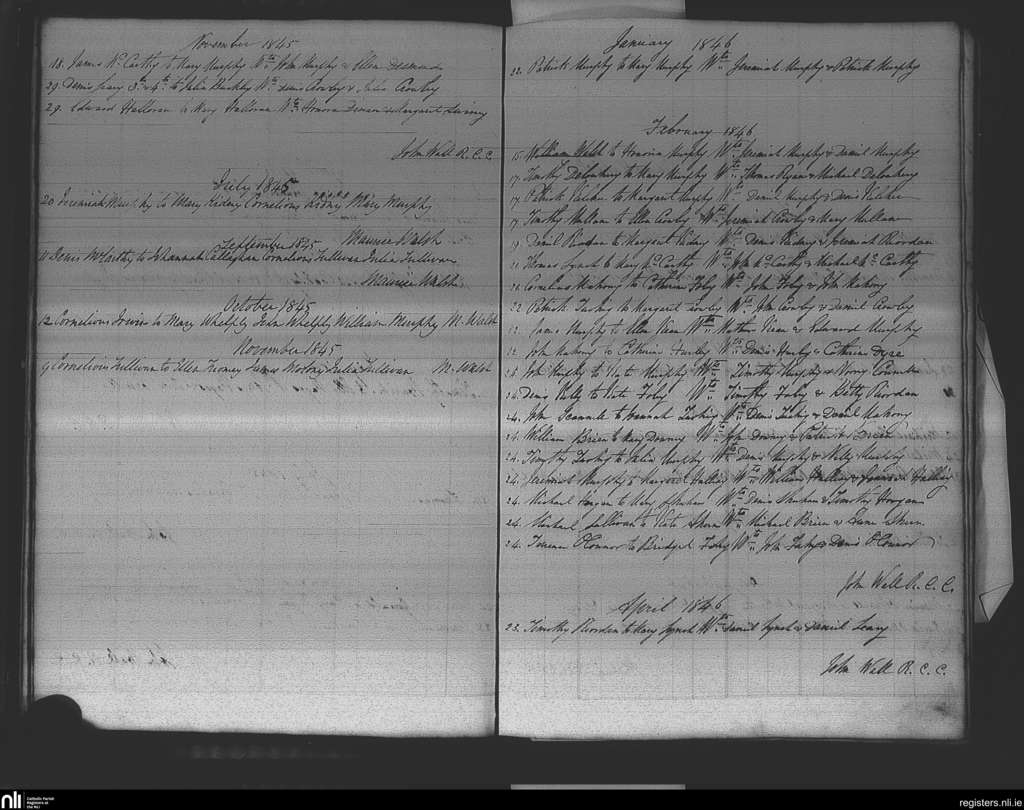 November 1845
18. James McCarthy to Mary Murphy Wts Wm Murphy & Ellen Desmond
29. Denis Leary 3d & 4th to Julia Buckley Wts Denis Crowly & Julia Crowly
29. Edward Halloran to Mary Halloran Wts Honora & Margaret
John Wall R.C.C.
July 1845
20 Jeremiah Murphy to Mary Kidney Cornelious Kidney Mary Murphy
Maurice Walsh
September 1845
11 Denis McCarthy to Johannah Callaghan Cornelious Sullivan Julia Sullivan
Maurice Walsh
October 1845
12 Cornelious Irwin to Mary Whelply John Whelply William Murphy M. Walsh
November 1845
9 Cornelious Sullivan to Ellen James Julia Sullivan M. Walsh
January 1846
22. Patrick Murphy to Mary Murphy Wts Jeremiah Murphy & Patrick Murphy
February 1846
15. William Walsh to Honoria Murphy Wts Jeremiah Murphy & Daniel Murphy
17. Timothy to Mary Murphy Wts Thomas Ryan & Michael
17. Patrick Kelcher to Margaret Murphy Wts Daniel Murphy & Denis Kelcher
17. Timothy Mullane to Ellen Crowly Wts Jeremiah Crowly & Mary Mullane
19. Daniel Riordan to Margaret Kidney Wts Denis Kidney & Jeremiah Riordan
21. Thomas Lynch to Mary McCarthy Wts John McCarthy & Michael McCarthy
21. Cornelius Mahony to Catherine Foley Wts John Foley & John Mahony
22. Patrick to Margaret Crowly Wts John Crowly & Daniel Crowly
James Murphy to Ellen Wts & Edward Murphy
John Mahony to Catherine Hurley Wts Denis Hurley & Catherine
John Murphy to Kate Murphy Wts Timothy Murphy &
24. Denis Kelly to Kate Foley Wts Timothy Foley & Betty Riordan
24. John to Hannah Wts Denis & Daniel Mahony
24. William Brien to Mary Downey Wts John Downey & Patrick Brien
24. Timothy to Julia Murphy Wts Denis Murphy & Murphy
24. Jeremiah Murphy to Margaret Wts William &
24. Michael Horgan to Mary Wts Denis & Timothy Horgan
24. Michael Sullivan to Kate Wts Michael Brien &
24. O'Connor to Bridget Wts John & Denis O'Connor
John Wall R.C.C.
April 1846
23. Timothy Riordan to Mary Lynch Wts Daniel Lynch & Daniel Leary
John Wall R.C.C.
nli
Catholic Parish
Registers at
the NLI
registers.nli.ie